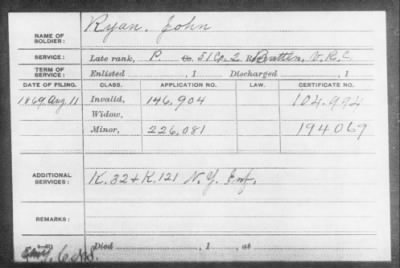 NAME OF SOLDIER: Ryan, John
SERVICE: Late rank, P. Co. 51 Co. 2 Battn, V.R.C.
TERM OF SERVICE: Enlisted , 1 Discharged , 1
DATE OF FILING. CLASS. APPLICATION NO. LAW. CERTIFICATE NO.
1869 Aug 11 Invalid, 146,904 104,994
Widow,
Minor, 226,081 194069
ADDITIONAL SERVICES: K. 32 & K. 121 N.Y. Inf.
REMARKS:
Died , 1 , at